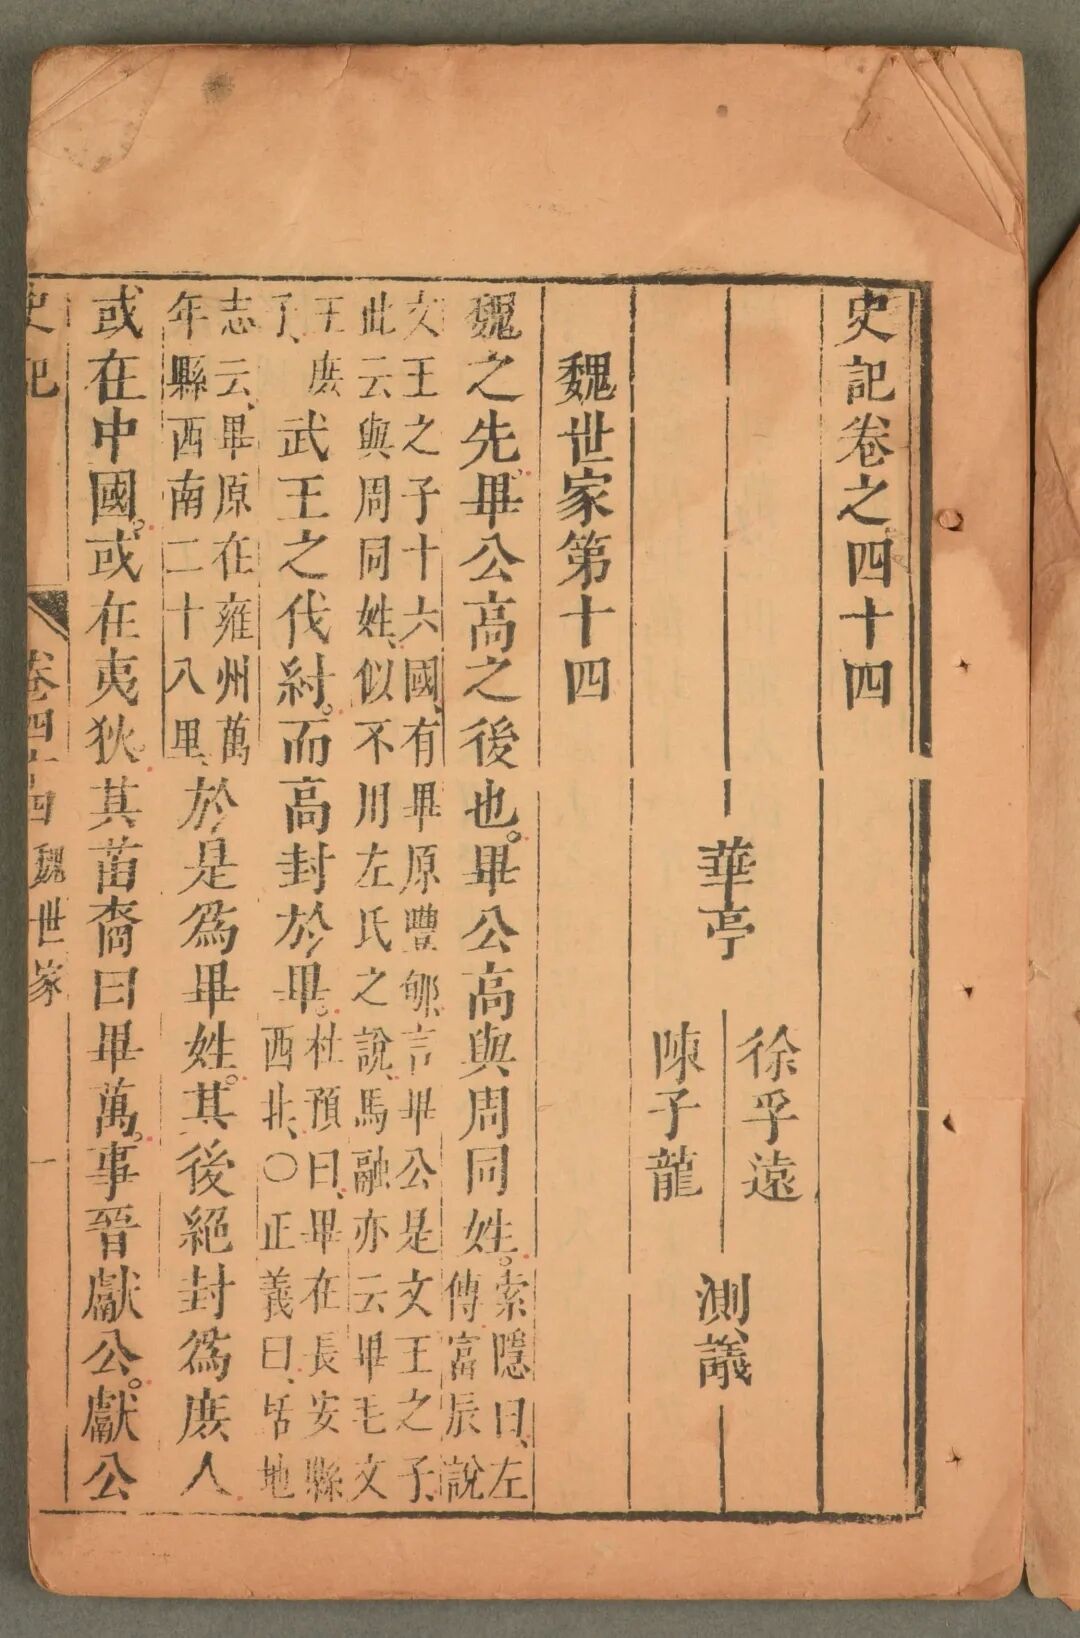 史記卷之四十四
華亭
徐孚遠
陳子龍
測議
魏世家第十四
魏之先。畢公高之後也。畢公高與周同姓。
索隱曰、左
傳富辰說
文王之子十六國、有畢原豐郇、言畢公是文王之子、
此云與周同姓、似不用左氏之說、馬融亦云畢毛文
王庶
子、
武王之伐紂。而高封於畢。
杜預曰、畢在長安縣
西北、○正義曰、括地
志云、畢原在雍州萬
年縣西南二十八里、
於是爲畢姓。其後絕封爲庶人
或在中國。或在夷狄。其苗裔曰畢萬。事晉獻公。獻公
史記 卷四十四 魏世家 一